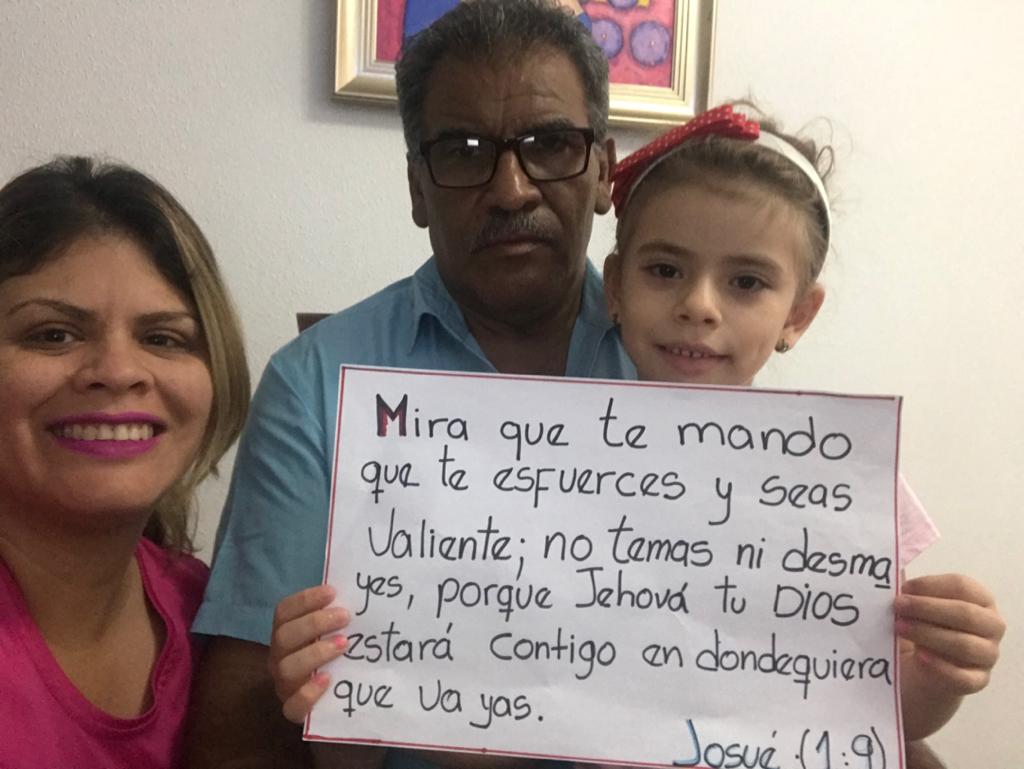 Mira que te mando
que te esfuerces y seas
Valiente; no temas ni desma
yes, porque Jehová tu DIOS
estará contigo en dondequiera
que vayas.
Josué (1:9)